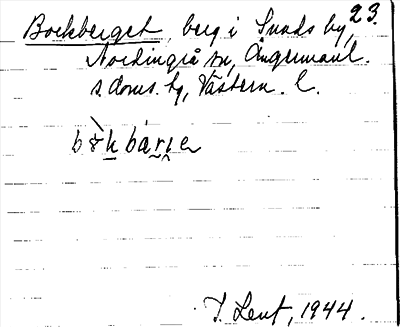 23.
Bockberget, berg i Sunds by,
Nordingrå sn, Ångermanl.
s. doms. hg, Västern. l.
bo̊k bárɩe
T. Lent, 1944.